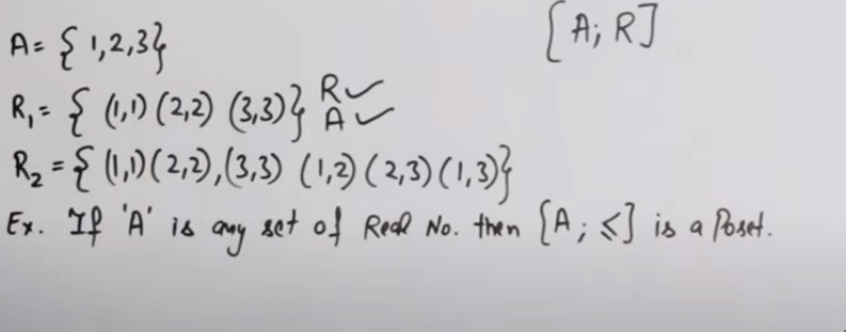 A = { 1,2,3}
[A; R]
R₁ = { (1,1) (2,2) (3,3)} R✓ A✓
R₂ = { (1,1) (2,2), (3,3) (1,2) (2,3) (1,3)}
Ex. If 'A' is any set of Real No. then [A; ≤] is a Poset.